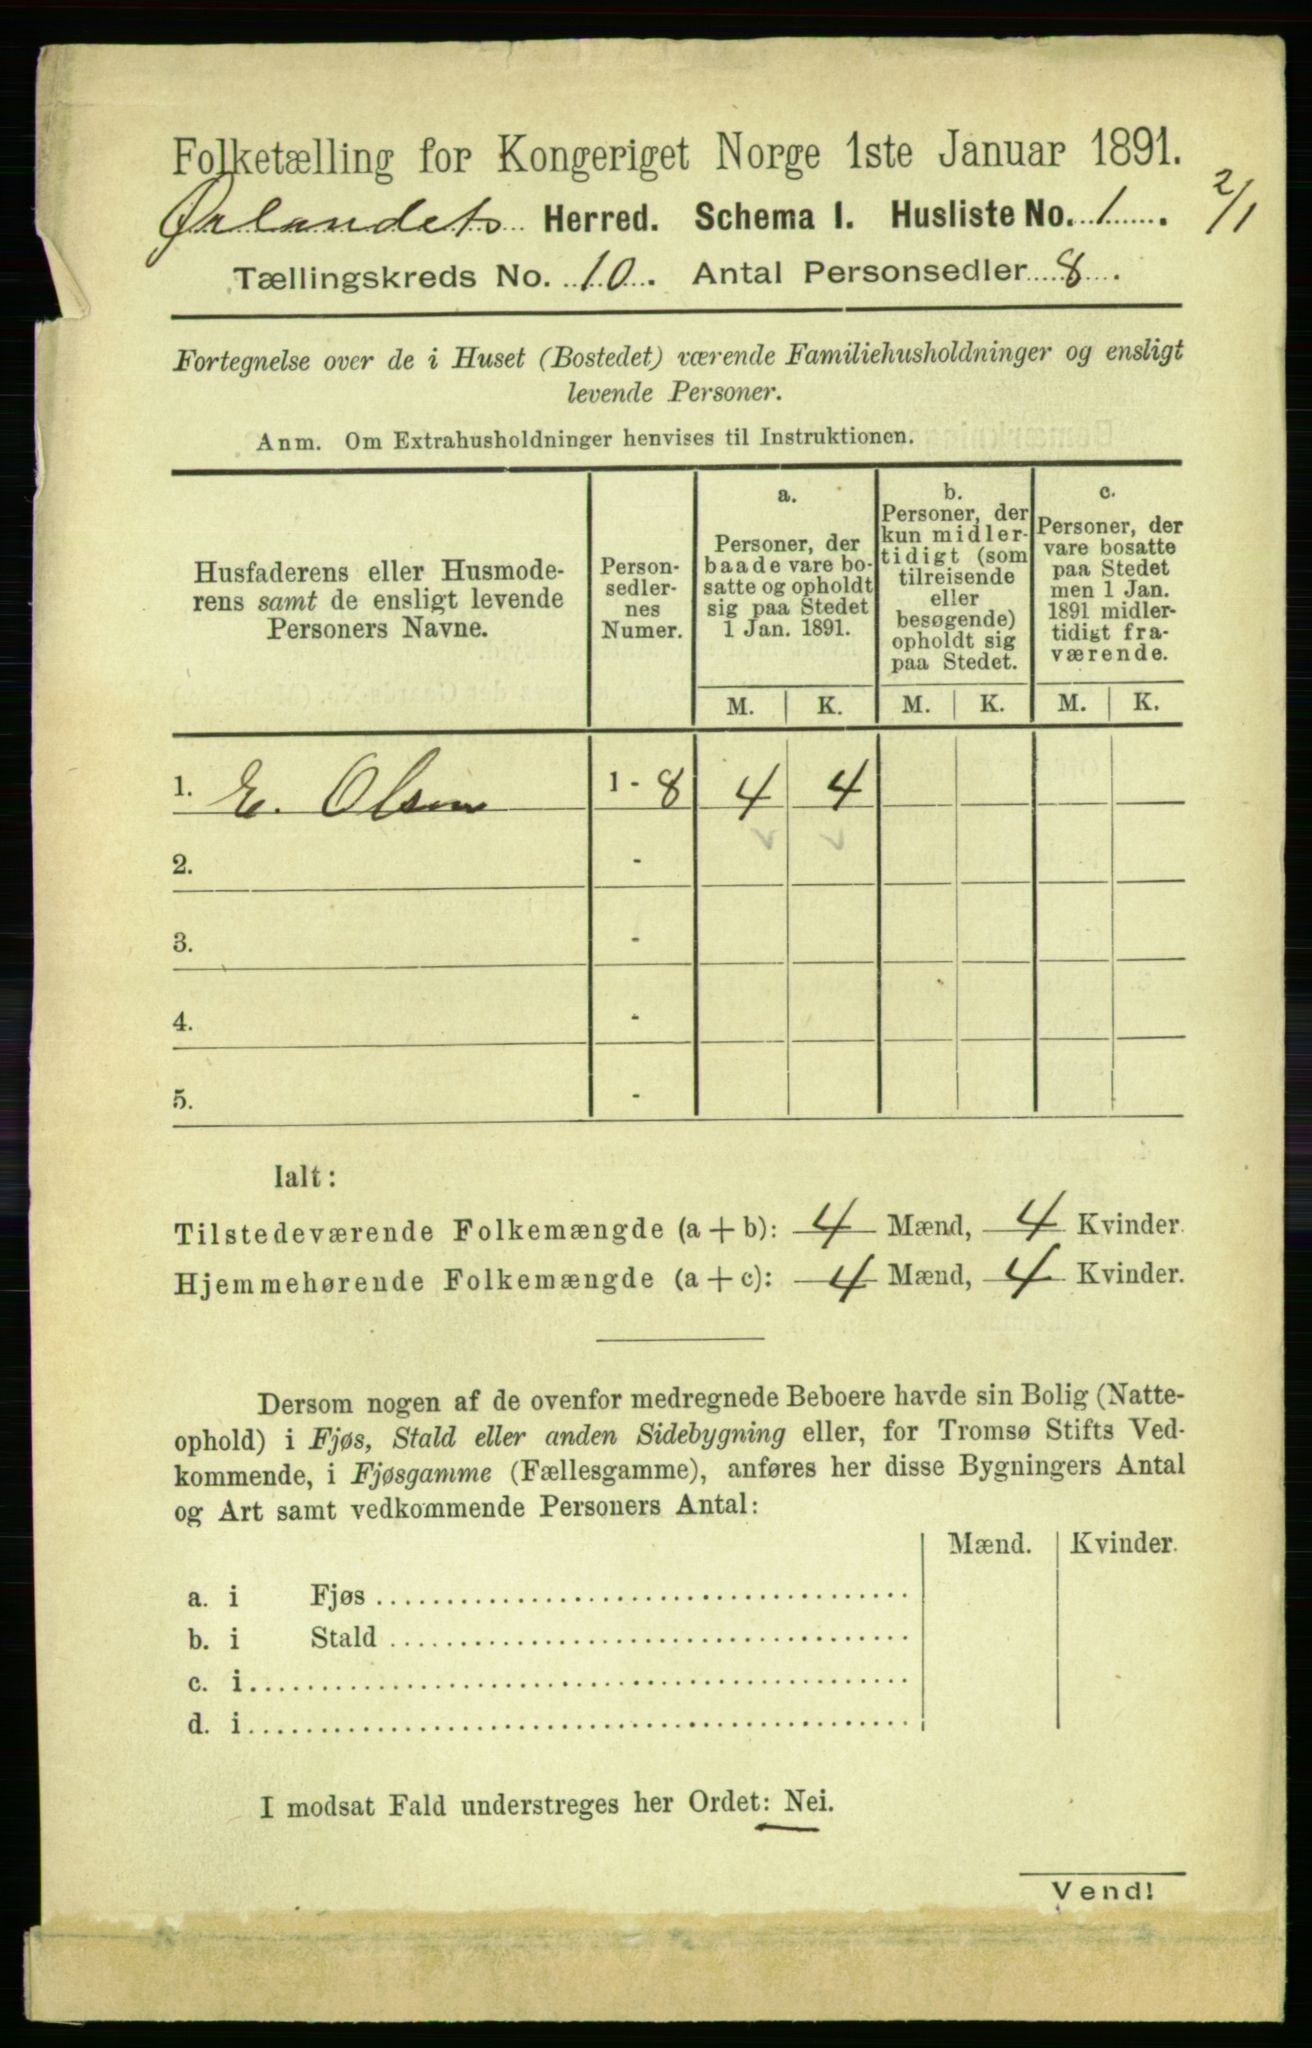 Folketælling for Kongeriget Norge 1ste Januar 1891.
Ørlandets Herred. Schema I. Husliste No. 1. 2/1
Tællingskreds No. 10. Antal Personsedler 8.
Fortegnelse over de i Huset (Bostedet) værende Familiehusholdninger og ensligt
levende Personer.
Anm. Om Extrahusholdninger henvises til Instruktionen.
Husfaderens eller Husmode-
rens samt de ensligt levende
Personers Navne.
Person-
sedler-
nes
Numer.
a.
Personer, der
baade vare bo-
satte og opholdt
sig paa Stedet
1 Jan. 1891.
b.
Personer, der
kun midler-
tidigt (som
tilreisende
eller
besøgende)
opholdt sig
paa Stedet.
c.
Personer, der
vare bosatte
paa Stedet
men 1 Jan.
1891 midler-
tidigt fra-
værende.
M. K. M. K. M. K.
1. E. Olsen 1 - 8 4 4
2. -
3. -
4. -
5. -
Ialt:
Tilstedeværende Folkemængde (a + b): 4 Mænd, 4 Kvinder.
Hjemmehørende Folkemængde (a + c): 4 Mænd, 4 Kvinder.
Dersom nogen af de ovenfor medregnede Beboere havde sin Bolig (Natte-
ophold) i Fjøs, Stald eller anden Sidebygning eller, for Tromsø Stifts Ved-
kommende, i Fjøsgamme (Fællesgamme), anføres her disse Bygningers Antal
og Art samt vedkommende Personers Antal:
Mænd. Kvinder.
a. i Fjøs
b. i Stald
c. i
d. i
I modsat Fald understreges her Ordet: Nei.
Vend!